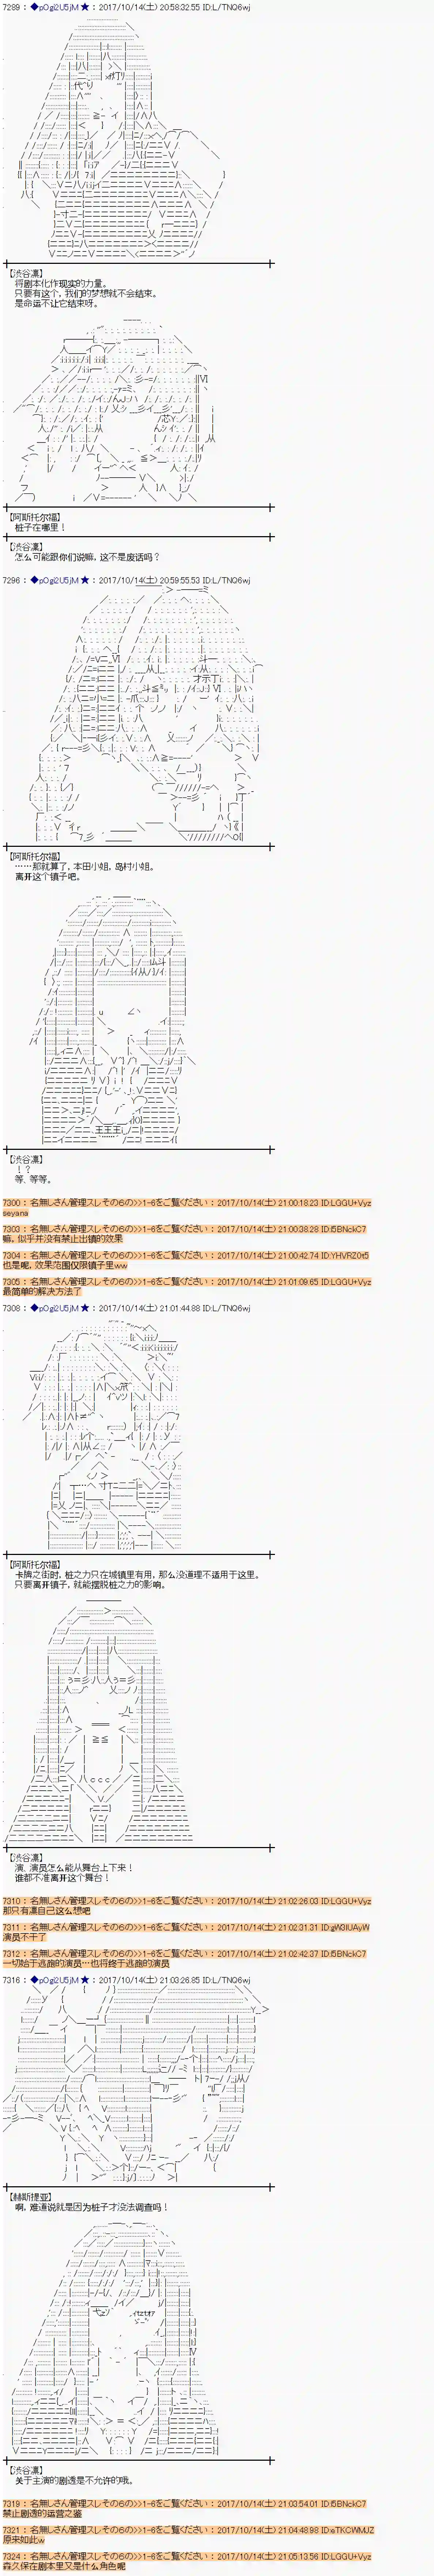 7289 : ◆pOgi2U5jM ★ : 2017/10/14(土) 20:58:32.55 ID:L/TNQ6wj
【渋谷凛】
将剧本化作现实的力量。
只要有这个，我们的梦想就不会结束。
是命运不让它结束呀。
【阿斯托尔福】
桩子在哪里！
【渋谷凛】
怎么可能跟你们说嘛，这不是废话吗？
7296 : ◆pOgi2U5jM ★ : 2017/10/14(土) 20:59:55.53 ID:L/TNQ6wj
【阿斯托尔福】
……那就算了，本田小姐，岛村小姐。
离开这个镇子吧。
【渋谷凛】
！？
等、等等。
7300 : 名無しさん管理スレその６の>>1-6をご覧ください : 2017/10/14(土) 21:00:18.23 ID:LGGU+Vyz
seyana
7303 : 名無しさん管理スレその６の>>1-6をご覧ください : 2017/10/14(土) 21:00:38.28 ID:I5BNckC7
嘛，似乎并没有禁止出镇的效果
7304 : 名無しさん管理スレその６の>>1-6をご覧ください : 2017/10/14(土) 21:00:42.74 ID:YHVRZ0t5
也是呢，效果范围仅限镇子里ww
7305 : 名無しさん管理スレその６の>>1-6をご覧ください : 2017/10/14(土) 21:01:09.65 ID:LGGU+Vyz
最简单的解决方法了
7308 : ◆pOgi2U5jM ★ : 2017/10/14(土) 21:01:44.88 ID:L/TNQ6wj
【阿斯托尔福】
卡牌之街时，桩之力只在城镇里有用，那么没道理不适用于这里。
只要离开镇子，就能摆脱桩之力的影响。
【渋谷凛】
演、演员怎么能从舞台上下来！
谁都不准离开这个舞台！
7310 : 名無しさん管理スレその６の>>1-6をご覧ください : 2017/10/14(土) 21:02:26.03 ID:LGGU+Vyz
那只有凛自己这么想吧
7311 : 名無しさん管理スレその６の>>1-6をご覧ください : 2017/10/14(土) 21:02:31.31 ID:gW3IUAyW
演员不干了
7312 : 名無しさん管理スレその６の>>1-6をご覧ください : 2017/10/14(土) 21:02:42.37 ID:I5BNckC7
一切始于逃跑的演员…也将终于逃跑的演员
7316 : ◆pOgi2U5jM ★ : 2017/10/14(土) 21:03:26.85 ID:L/TNQ6wj
【赫斯提亚】
啊，难道说就是因为桩子才没法调查吗！
【渋谷凛】
关于主演的剧透是不允许的哦。
7319 : 名無しさん管理スレその６の>>1-6をご覧ください : 2017/10/14(土) 21:03:54.01 ID:I5BNckC7
禁止剧透的运营之鉴
7321 : 名無しさん管理スレその６の>>1-6をご覧ください : 2017/10/14(土) 21:04:48.98 ID:eTKCWMJZ
原来如此w
7324 : 名無しさん管理スレその６の>>1-6をご覧ください : 2017/10/14(土) 21:05:13.56 ID:LGGU+Vyz
森久保在剧本里又是什么角色呢